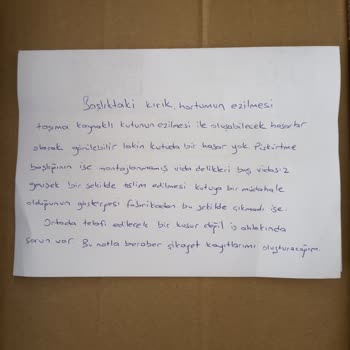 Başlıktaki kırık, hortumun ezilmesi
taşıma kaynaklı kutunun ezilmesi ile oluşabilecek hasarlar
olarak görülebilir lakin kutuda bir hasar yok. Püskürtme
başlığının ise montajlanmamış vida delikleri boş vidasız
gevşek bir şekilde teslim edilmesi kutuya bir müdahale
olduğunun göstergesi fabrikadan bu şekilde çıkmadı ise.
Ortada telafi edilecek bir kusur değil iş ahlakında
sorun var Bu notla beraber şikayet kayıtlarımı oluşturacağım.